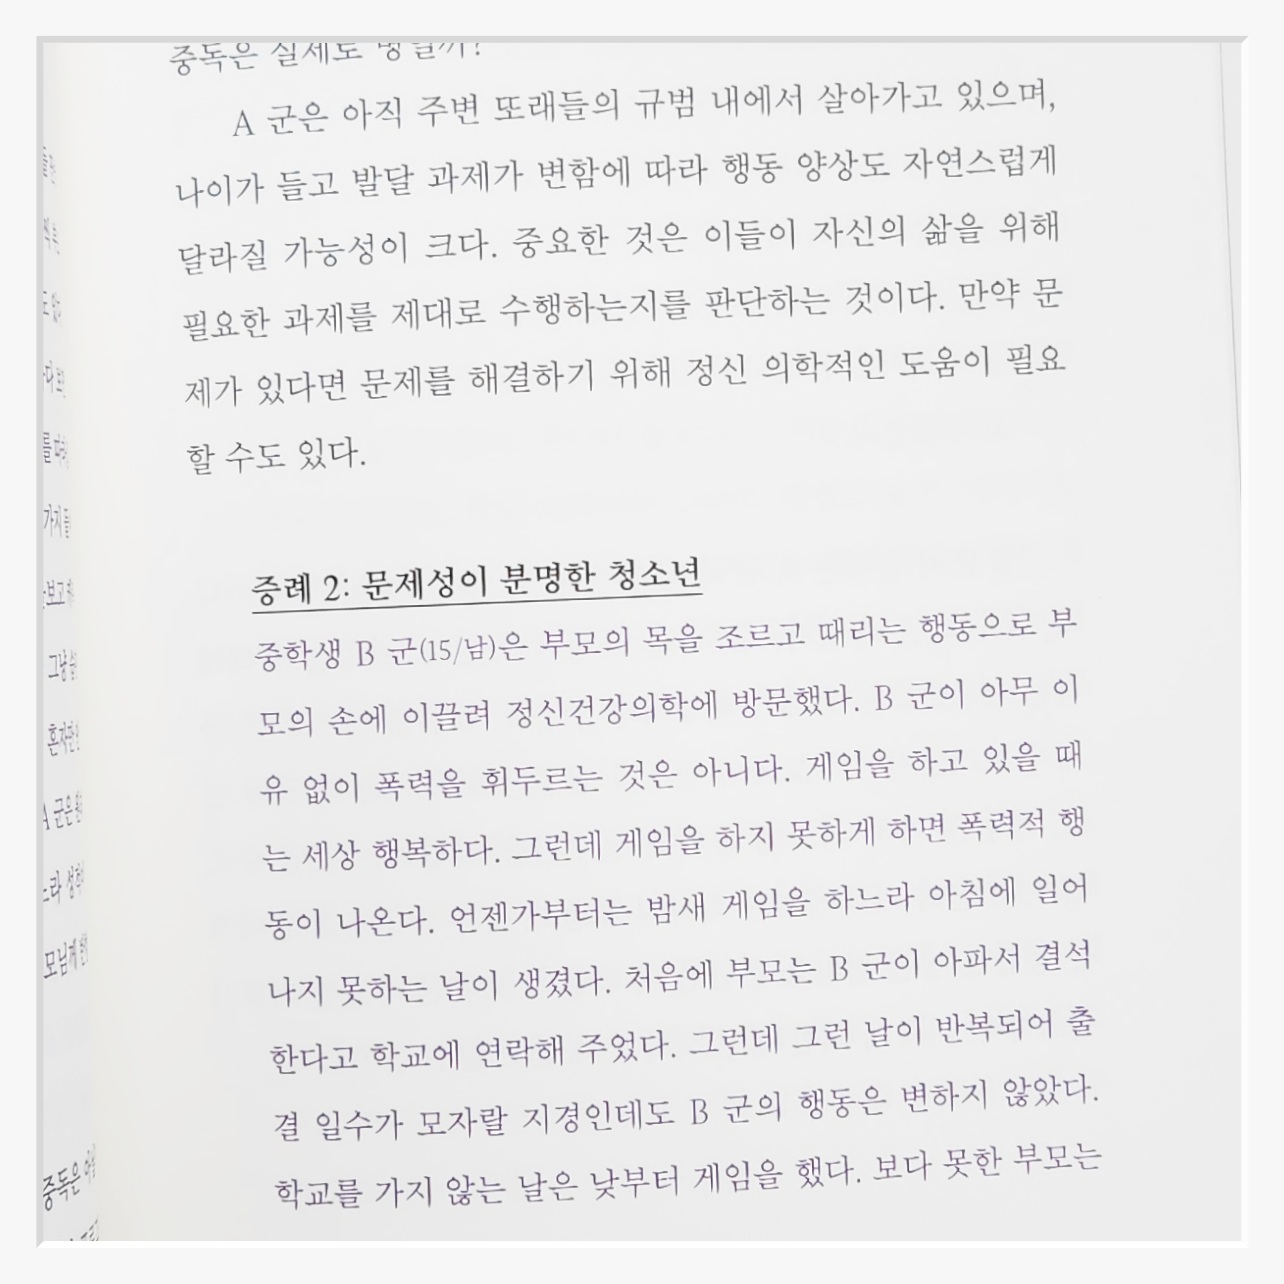 중독은 실제로
A 군은 아직 주변 또래들의 규범 내에서 살아가고 있으며,
나이가 들고 발달 과제가 변함에 따라 행동 양상도 자연스럽게
달라질 가능성이 크다. 중요한 것은 이들이 자신의 삶을 위해
필요한 과제를 제대로 수행하는지를 판단하는 것이다. 만약 문
제가 있다면 문제를 해결하기 위해 정신 의학적인 도움이 필요
할 수도 있다.
증례 2: 문제성이 분명한 청소년
중학생 B 군(15/남)은 부모의 목을 조르고 때리는 행동으로 부
모의 손에 이끌려 정신건강의학에 방문했다. B 군이 아무 이
유 없이 폭력을 휘두르는 것은 아니다. 게임을 하고 있을 때
는 세상 행복하다. 그런데 게임을 하지 못하게 하면 폭력적 행
동이 나온다. 언젠가부터는 밤새 게임을 하느라 아침에 일어
나지 못하는 날이 생겼다. 처음에 부모는 B 군이 아파서 결석
한다고 학교에 연락해 주었다. 그런데 그런 날이 반복되어 출
결 일수가 모자랄 지경인데도 B 군의 행동은 변하지 않았다.
학교를 가지 않는 날은 낮부터 게임을 했다. 보다 못한 부모는